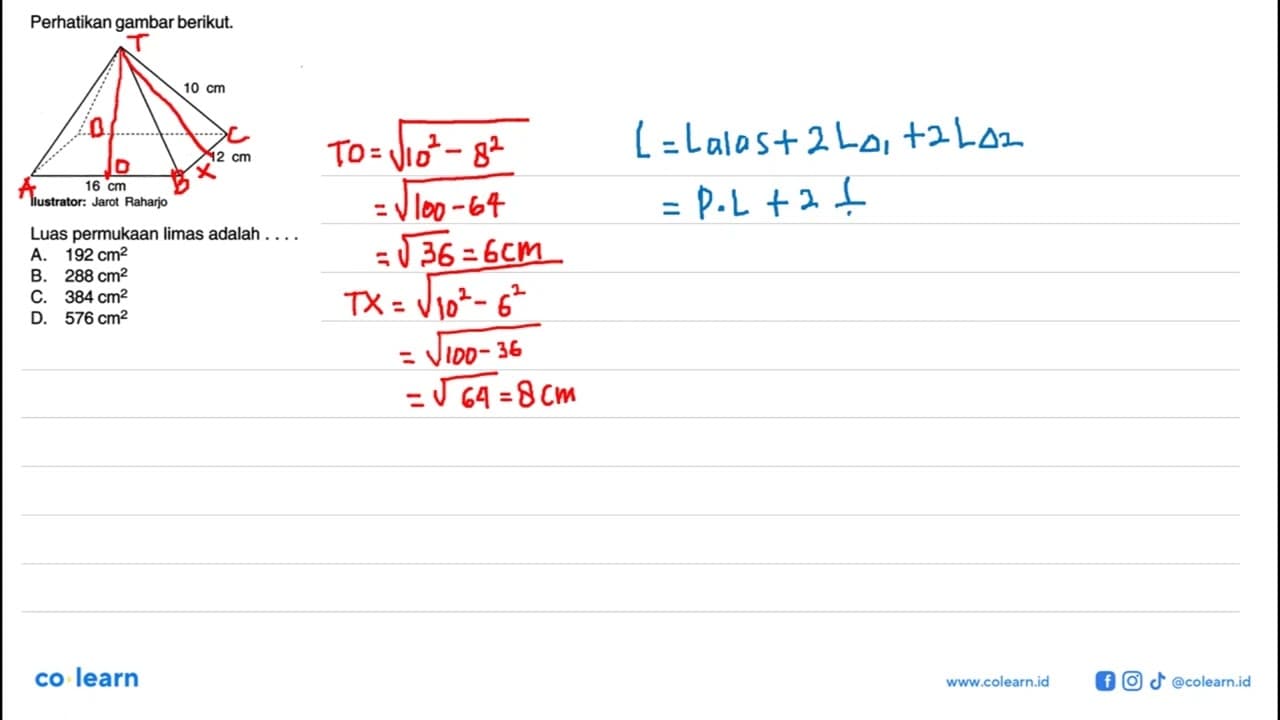 Perhatikan gambar berikut.
T
10 cm
D
C
12 cm
O
X
A
B
16 cm
Ilustrator: Jarot Raharjo
Luas permukaan limas adalah . . . .
A. 192 cm²
B. 288 cm²
C. 384 cm²
D. 576 cm²
TO = √10² - 8²
= √100 - 64
= √36 = 6 cm
TX = √10² - 6²
= √100 - 36
= √64 = 8 cm
L = Lalas + 2 L△1 + 2 L△2
= P.L + 2 1
co learn
www.colearn.id
@colearn.id